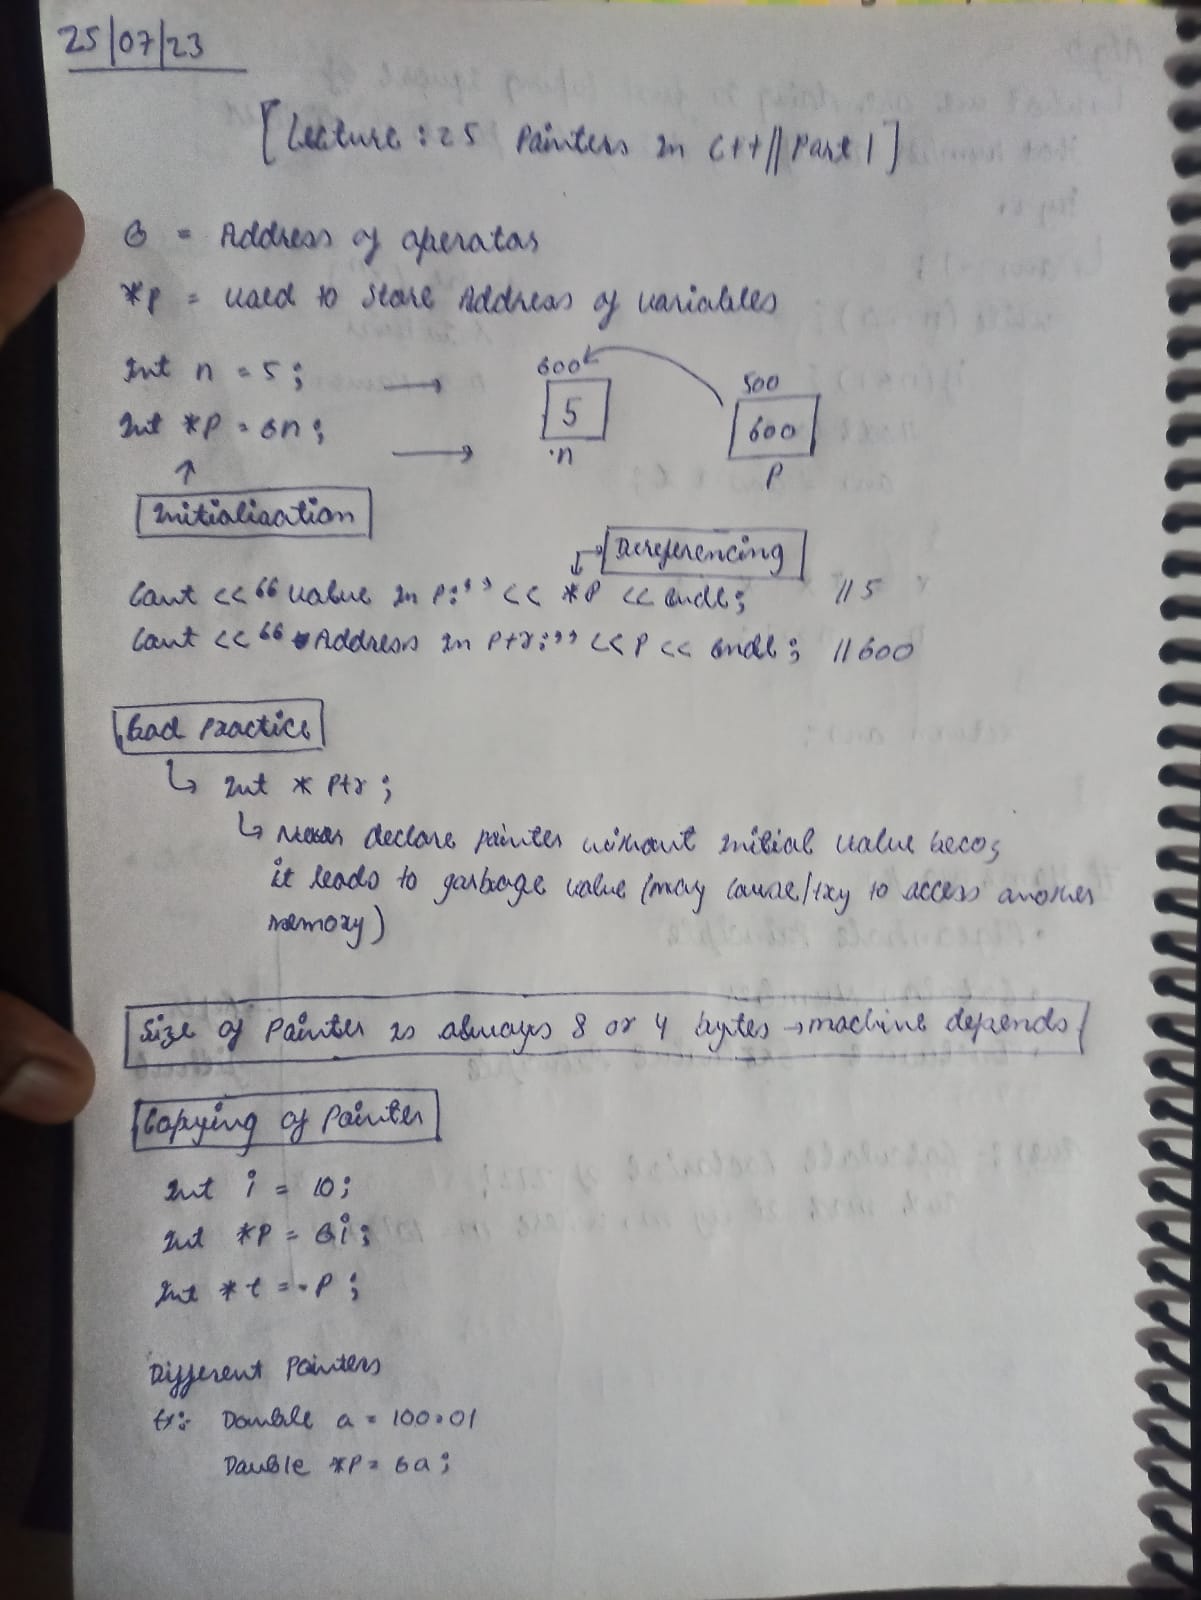 25/07/23
[Lecture : 25 Pointers in C++ || Part 1]
& = Address of operator
*p = used to store Address of variables
Int n = 5 ; →
600
5
n
500
600
P
Int *P = &n ; →
↑
Initialisation
Dereferencing
Cout << "value in P:" << *P << endl; //5
Cout << "Address in Ptr:" << P << endl; //600
Bad Practice
↳ Int * Ptr ;
↳ Never declare pointer without initial value becoz
it leads to garbage value (may cause/try to access another
memory)
Size of Pointer is always 8 or 4 bytes → machine depends
Copying of Pointer
Int i = 10 ;
Int *P = &i ;
Int *t = P ;
Different Pointers
Ex:- Double a = 100.01
Double *P = &a ;